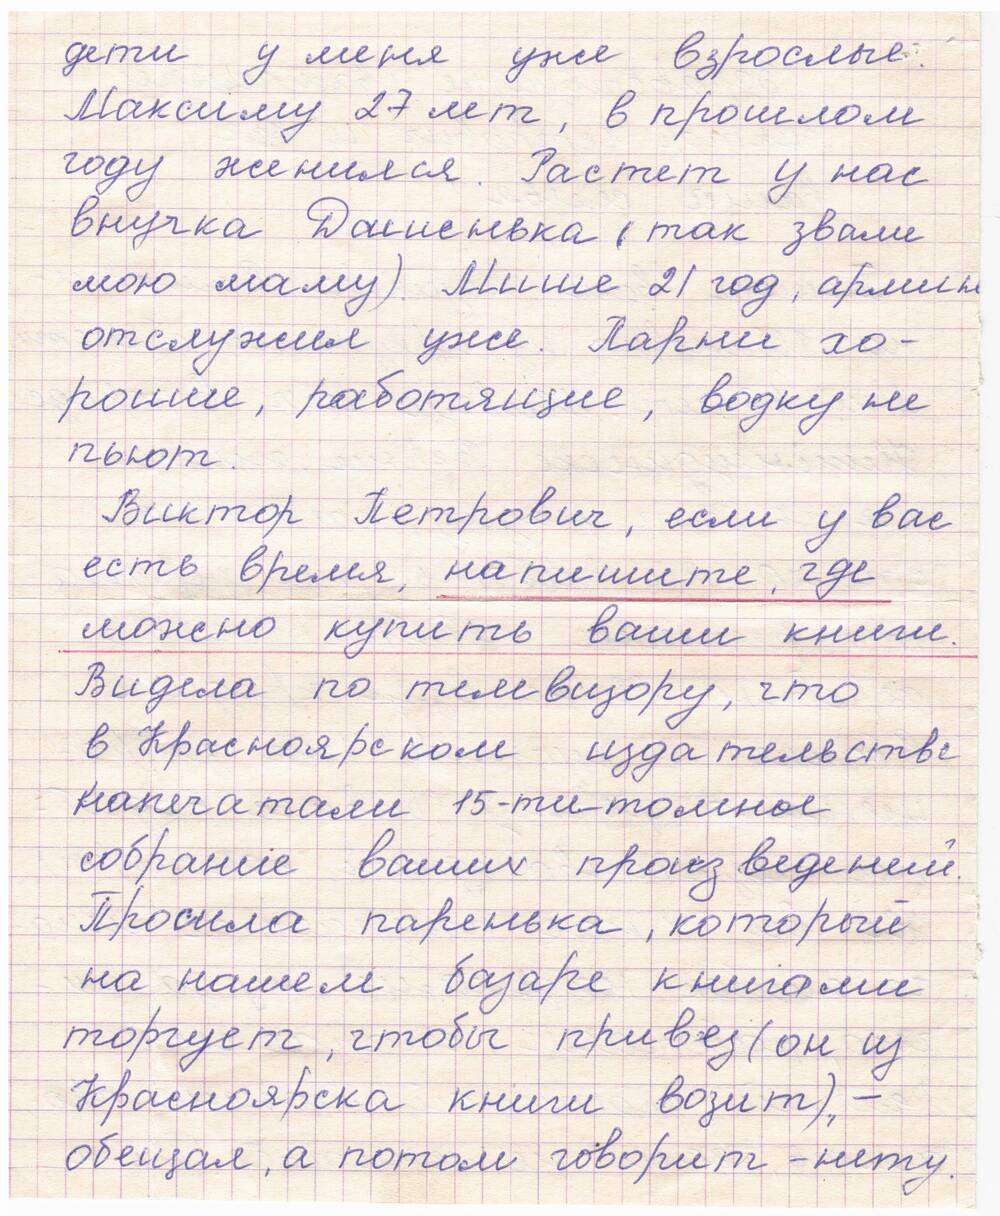 дети у меня уже взрослые.
Максиму 27 лет, в прошлом
году женился. Растет у нас
внучка Дашенька (так звали
мою маму). Мише 21 год, армию
отслужил уже. Парни хо-
рошие, работящие, водку не
пьют.
Виктор Петрович, если у вас
есть время, напишите, где
можно купить ваши книги.
Видела по телевизору, что
в Красноярском издательстве
напечатали 15-ти томное
собрание ваших произведений.
Просила паренька, который
на нашем базаре книгами
торгует, чтобы привез (он из
Красноярска книги возит), –
обещал, а потом говорит – нету.